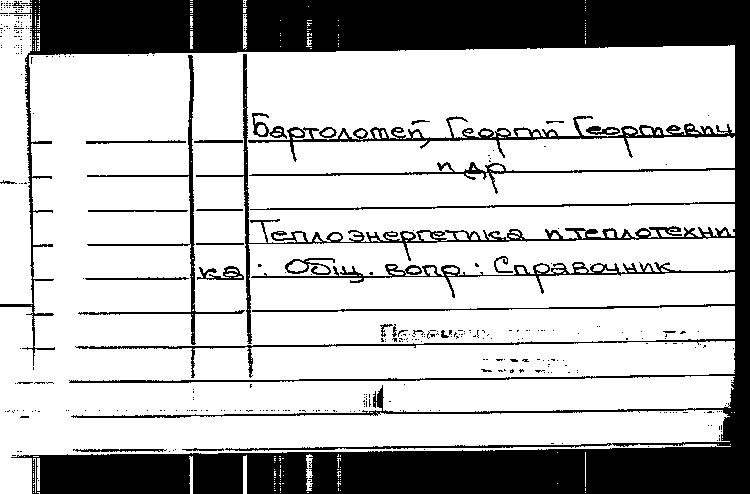 Бартоломей, Георгий Георгиевич
и др
Теплоэнергетика и теплотехни-
ка : Общ. вопр. : Справочник